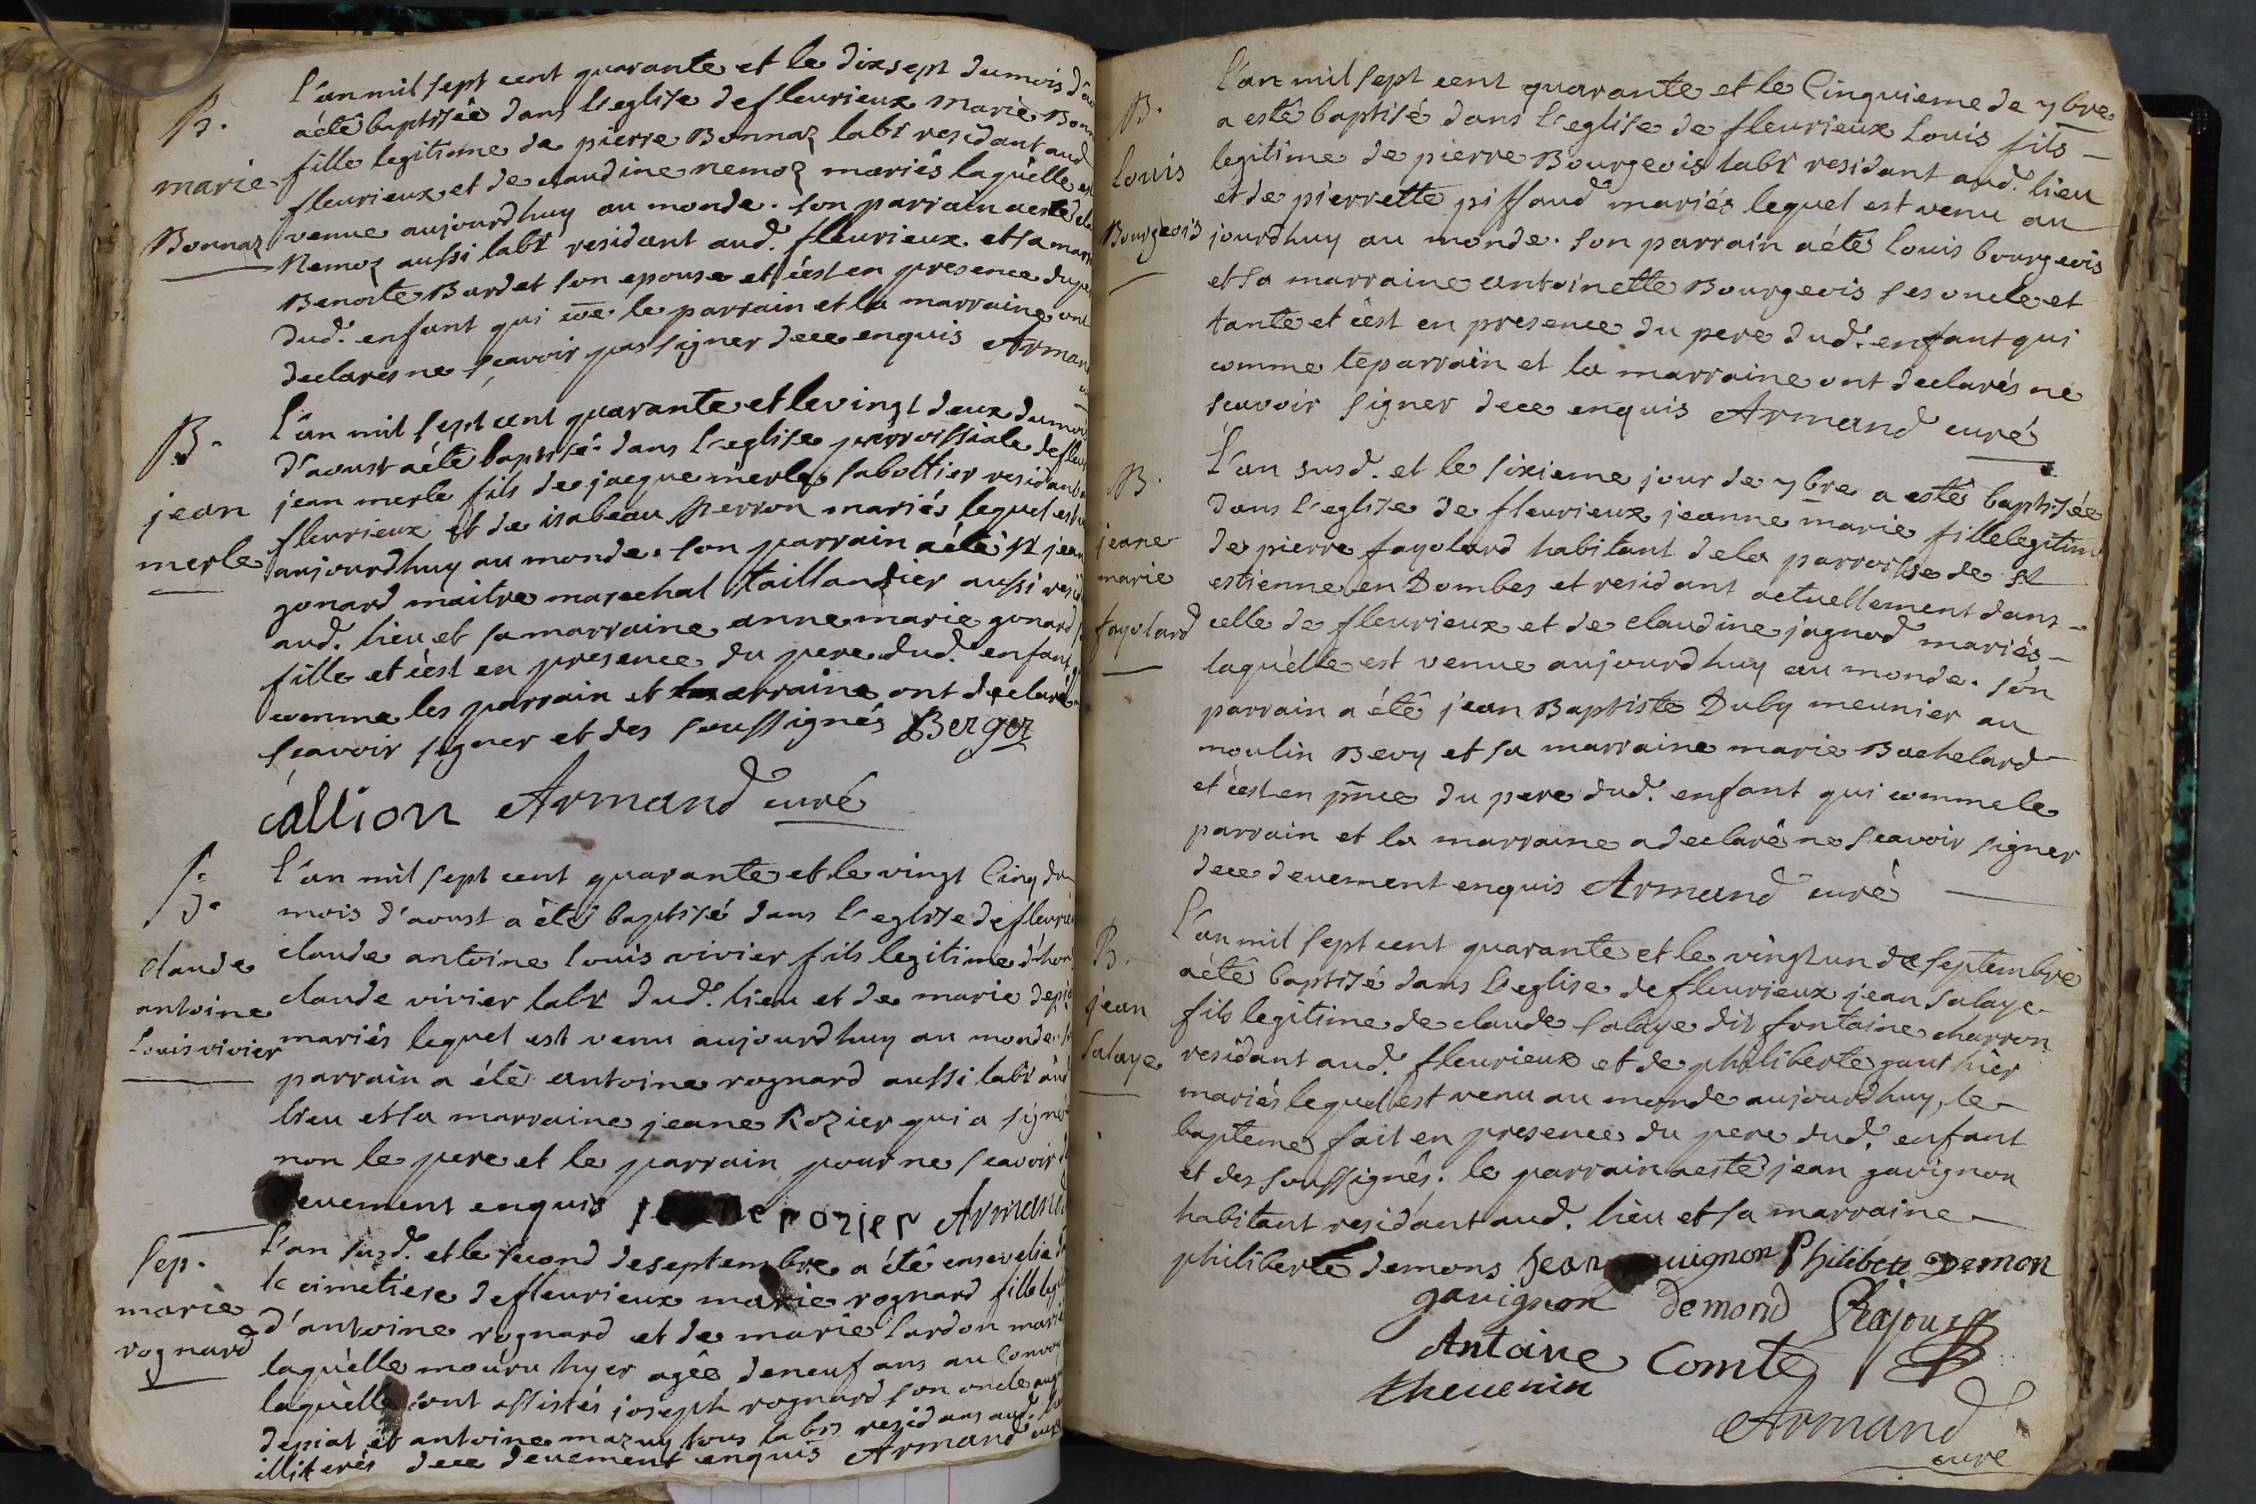 B.
marie
Bonnaz
L'an mil sept cent quarante et le dixsept du mois
a été baptisée dans l'eglise de fleurieux marie
fille legitime de pierre Bonnaz labr residant aud
fleurieux et de claudine nemoz mariés laquelle
venue aujourdhuy au monde. son parrain a esté
Nemoz aussi labr residant aud. fleurieux et sa
Benoite Bardet son epouse et c'est en presence du
dud. enfant qui coe le parrain et la marraine ont
declares ne sçavoir pas signer de ce enquis Armand
B.
jean
merle
L'an mil sept cent quarante et le vingt deux du mois
d'aoust a été baptisé dans l'eglise parroissiale de
jean merle fils de jacque merle sabottier residant
fleurieux et de isabeau perron mariés lequel est
aujourdhuy au monde. son parrain a été Sr jean
gonard maitre marechal taillandier aussi
aud. lieu et sa marraine anne marie gonard
fille et c'est en presence du pere dud. enfant
comme les parrain et marraine ont declaré
sçavoir signer et des soussignés Berger
callion Armand curé
claude
antoine
Louis vivier
L'an mil sept cent quarante et le vingt Cinq du
mois d'aoust a été baptisé dans l'eglise de
claude antoine louis vivier fils legitime
claude vivier labr dud. lieu et de marie
mariés lequel est venu aujourdhuy au monde
parrain a été antoine rognard aussi labr aud
lieu et sa marraine jeane Rozier qui a signé
non le pere et le parrain pour ne sçavoir
enquis rozier Armand
Sep.
marie
rognard
L'an susd. et le second de septembre a été ensevelie
le cimetiere de fleurieux marie rognard fille
d'antoine rognard et de marie Lardon
laquelle mouru hyer agée de neuf ans au Convoy
laquelle sont assistés joseph rognard son oncle
depiat et antoine mazuy tous labrs residans aud.
illiterés de ce deuement enquis Armand
B.
louis
Bourgeois
L'an mil sept cent quarante et le Cinquieme de 7bre
a esté baptisé dans l'eglise de fleurieux Louis fils
legitime de pierre Bourgeois labr residant aud. lieu
et de pierrette piffaud mariés lequel est venu au
jourdhuy au monde. son parrain a été louis bourgeois
et sa marraine antoinette Bourgeois ses oncle et
tante et c'est en presence du pere dud. enfant qui
comme le parrain et la marraine ont declarés ne
scavoir signer de ce enquis Armand curé
B.
jeane
marie
fayolard
L'an susd. et le sixieme jour de 7bre a esté baptisée
dans l'eglise de fleurieux jeanne marie fille legitime
de pierre fayolard habitant de la parroisse de St
estienne en Dombes et residant actuellement dans
celle de fleurieux et de claudine jagnod mariés
laquelle est venue aujourdhuy au monde. son
parrain a été jean Baptiste Duby meunier au
moulin Bevy et sa marraine marie Bachelard
et c'est en pnce du pere dud. enfant qui comme le
parrain et la marraine a declaré ne scavoir signer
de ce deuement enquis Armand curé
B.
jean
Salaye
L'an mil sept cent quarante et le vingt un de septembre
a été baptisé dans l'eglise de fleurieux jean Salaye
fils legitime de claude Salaye dit fontaine charron
residant aud. fleurieux et de philiberte gauthier
mariés lequel est venu au monde aujourdhuy, le
bapteme fait en presence du pere dud. enfant
et des soussignés; le parrain a esté jean gavignon
habitant residant aud. lieu et sa marraine
philiberte demons jean philibete Demon
gavignon demond
Antoine Comte
thevenin
Armand
curé